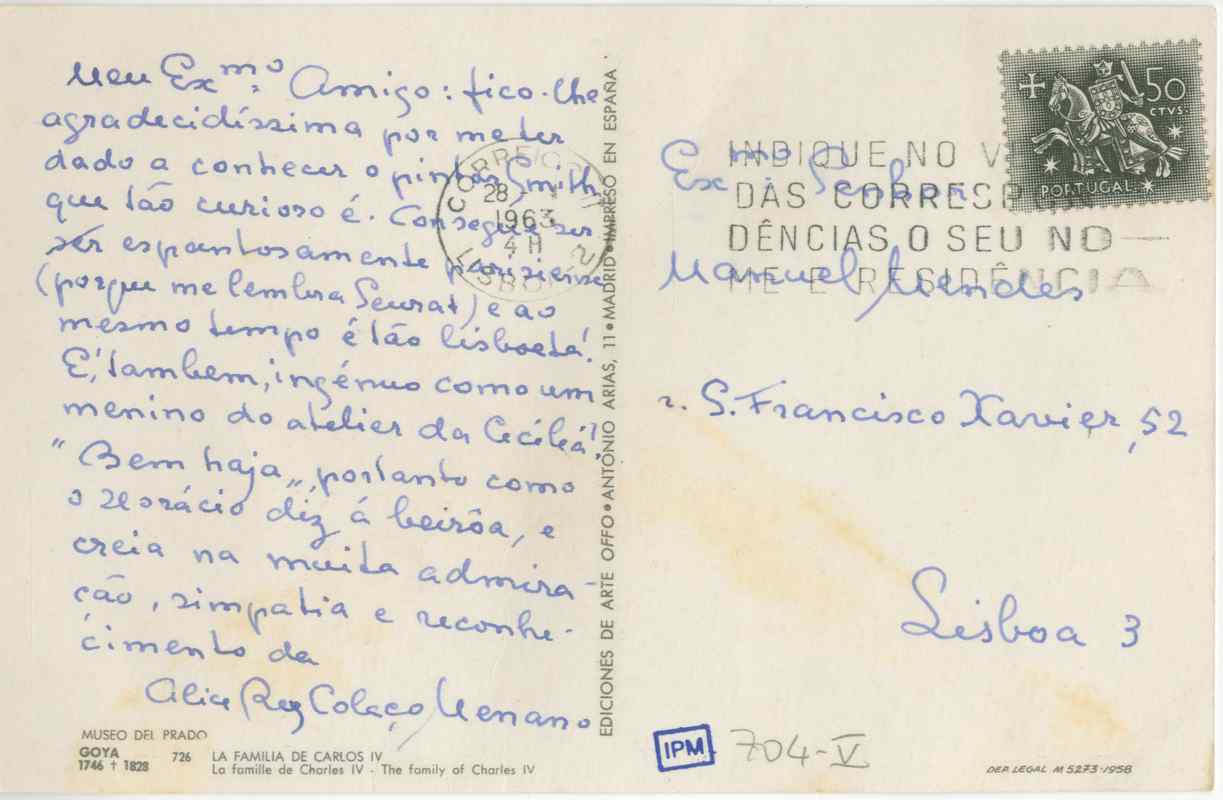 Meu Ex.mo Amigo: fico-lhe
agradecidíssima por me ter
dado a conhecer o pintor Smith
que tão curioso é. Consegue ser
ser espantosamente parisiense
(porque me lembra Seurat) e ao
mesmo tempo é tão lisboeta!
É, tambem, ingénuo como um
menino do atelier da Cecília!
"Bem haja", portanto como
o Horácio diz á beirôa, e
creia na muita admira-
ção, simpatia e reconhe-
cimento da
Alice Rey Colaço Menano
MUSEO DEL PRADO
GOYA
1746 † 1828
726
LA FAMILIA DE CARLOS IV
La famille de Charles IV - The family of Charles IV
EDICIONES DE ARTE OFFO • ANTONIO ARIAS, 11 • MADRID • IMPRESO EN ESPAÑA
CORREIO
28
1963
4 H
LISBOA 2
INDIQUE NO V
DAS CORRESP N
DÊNCIAS O SEU NO
ME E RESIDÊNCIA
50
CTVS.
PORTUGAL
Ex.mo Senhor
Manuel Mendes
r. S. Francisco Xavier, 52
Lisboa 3
IPM
704-V
DEP. LEGAL M 5273-1958